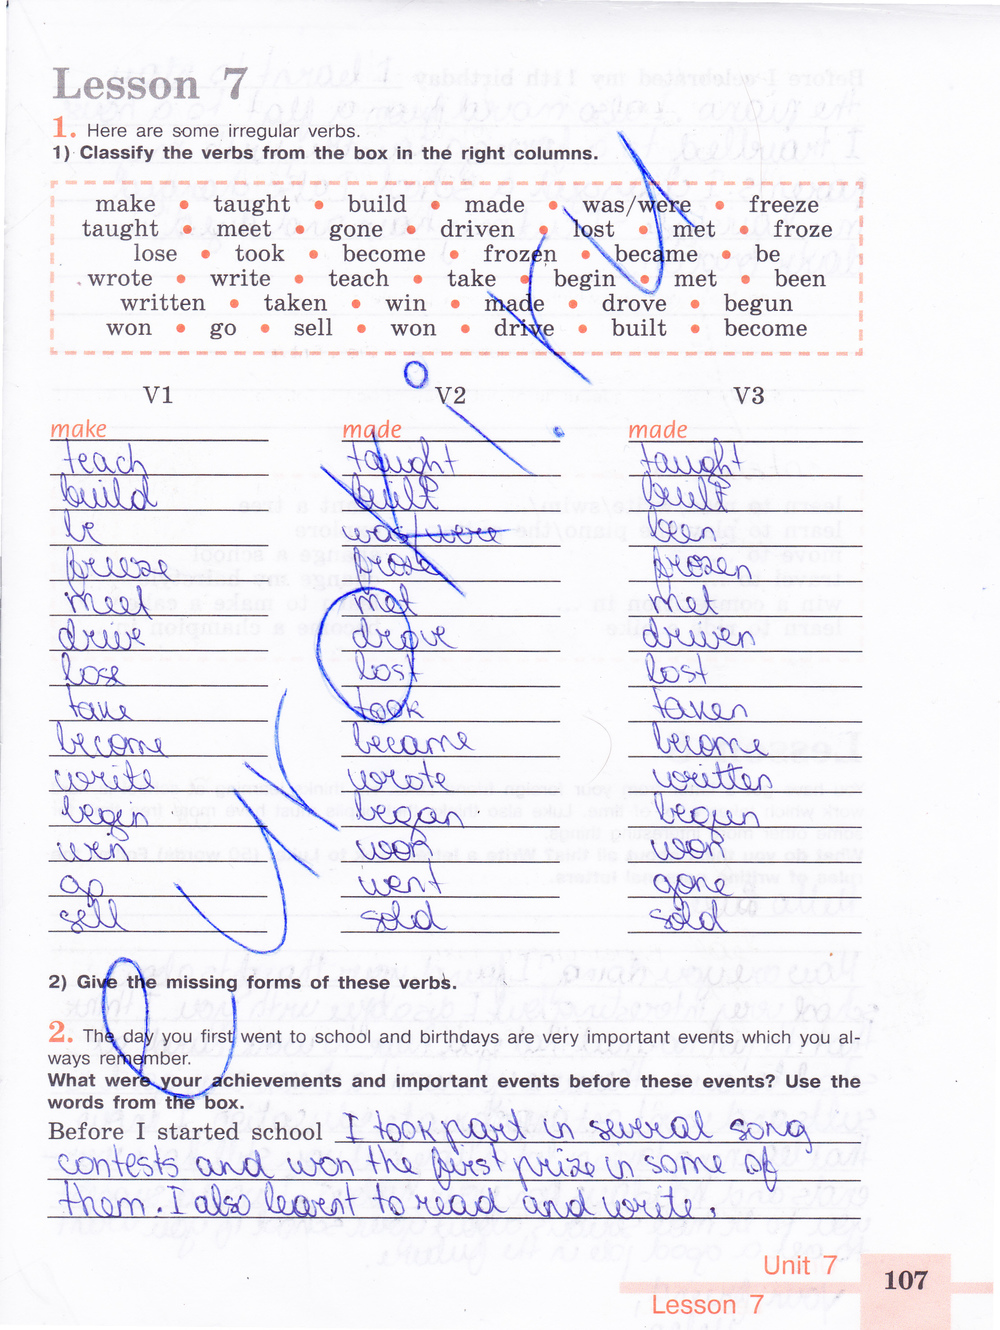 Lesson 7
1. Here are some irregular verbs.
1) Classify the verbs from the box in the right columns.
make • taught • build • made • was/were • freeze
taught • meet • gone • driven • lost • met • froze
lose • took • become • frozen • became • be
wrote • write • teach • take • begin • met • been
written • taken • win • made • drove • begun
won • go • sell • won • drive • built • become
V1 V2 V3
make made made
teach taught taught
build built built
be was were been
freeze froze frozen
meet met met
drive drove driven
lose lost lost
take took taken
become became become
write wrote written
begin began begun
win won won
go went gone
sell sold sold
2) Give the missing forms of these verbs.
2. The day you first went to school and birthdays are very important events which you al-
ways remember.
What were your achievements and important events before these events? Use the
words from the box.
Before I started school I took part in several song
contests and won the first prize in some of
them. I also learnt to read and write.
Unit 7
107
Lesson 7